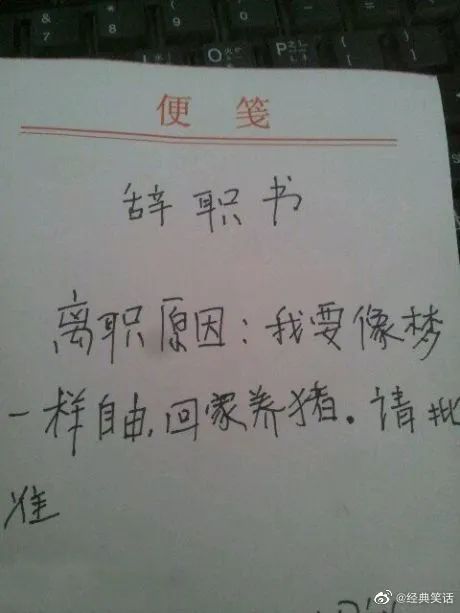 & 7
* 8
( 9
O
P
便 笺
辞 职 书
离职原因:我要像梦
一样自由,回家养猪。请批
准
@经典笑话